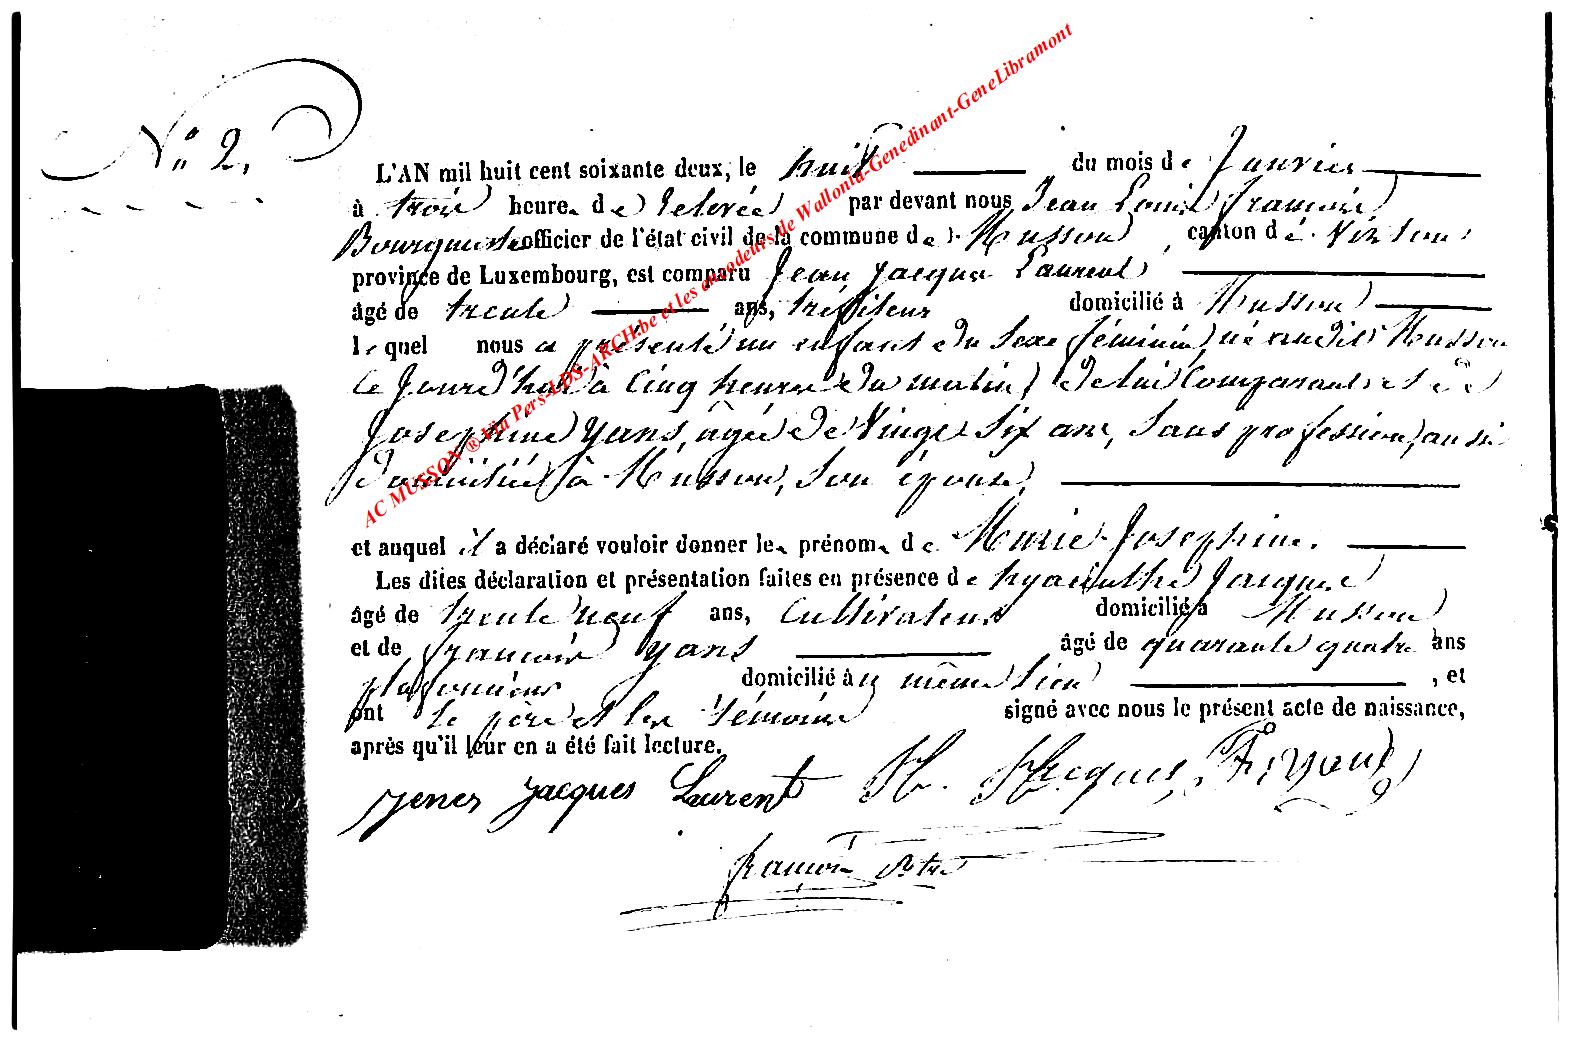 N° 2.
L'AN mil huit cent soixante deux, le huit du mois de Janvier
à trois heures de relevée par devant nous Jean Louis François
officier de l'état civil de la commune de Musson, canton de Virton,
province de Luxembourg, est comparu Jean Jacques Laurent
âgé de trente ans, tréfileur domicilié à Musson
lequel nous a présenté un enfant du sexe féminin, né Musson
ce jourd'hui à cinq heures du matin, de lui comparant et de
Josephine Yans, âgée de vingt six ans, sans profession, aussi
domiciliée à Musson, son épouse,
et auquel il a déclaré vouloir donner les prénoms de Marie Josephine.
Les dites déclaration et présentation faites en présence de hyacinthe Jacques
âgé de trente neuf ans, Cultivateur domicilié à Musson
et de françois Yans âgé de quarante quatre ans
plafonneur domicilié au même lieu, et
ont le père et les témoins signé avec nous le présent acte de naissance,
après qu'il leur en a été fait lecture.
Jacques Laurent H. Jacques F. Yans
françois
AC MUSSON ® Via Pers-LDS-ARCH.be et les encodeurs de Wallonia-Genedinant-GeneLibramont